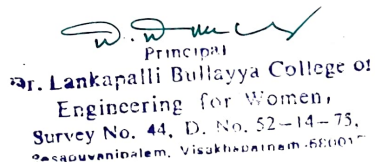 Principal
Dr. Lankapalli Bullayya College of
Engineering for Women,
Survey No. 44, D. No. 52-14-75,
Resapuvanipalem, Visakhapatnam